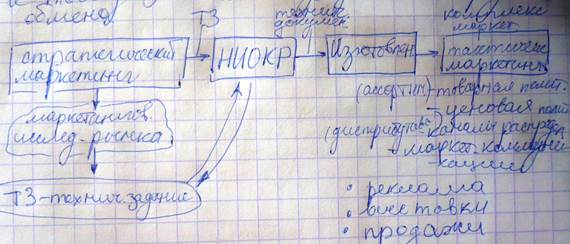 обмена
ТЗ
технич.
докумен.
комплекс
маркет.
стратегический
маркетинг
НИОКР
Изготовлен
тактическ
маркетинг
маркетингов.
исслед. рынка
ТЗ-технич задание
(ассортим)
- товарная полит.
- ценовая полит
каналы распред
- маркет. коммуни
кации
• реклама
• выставки
• продажи